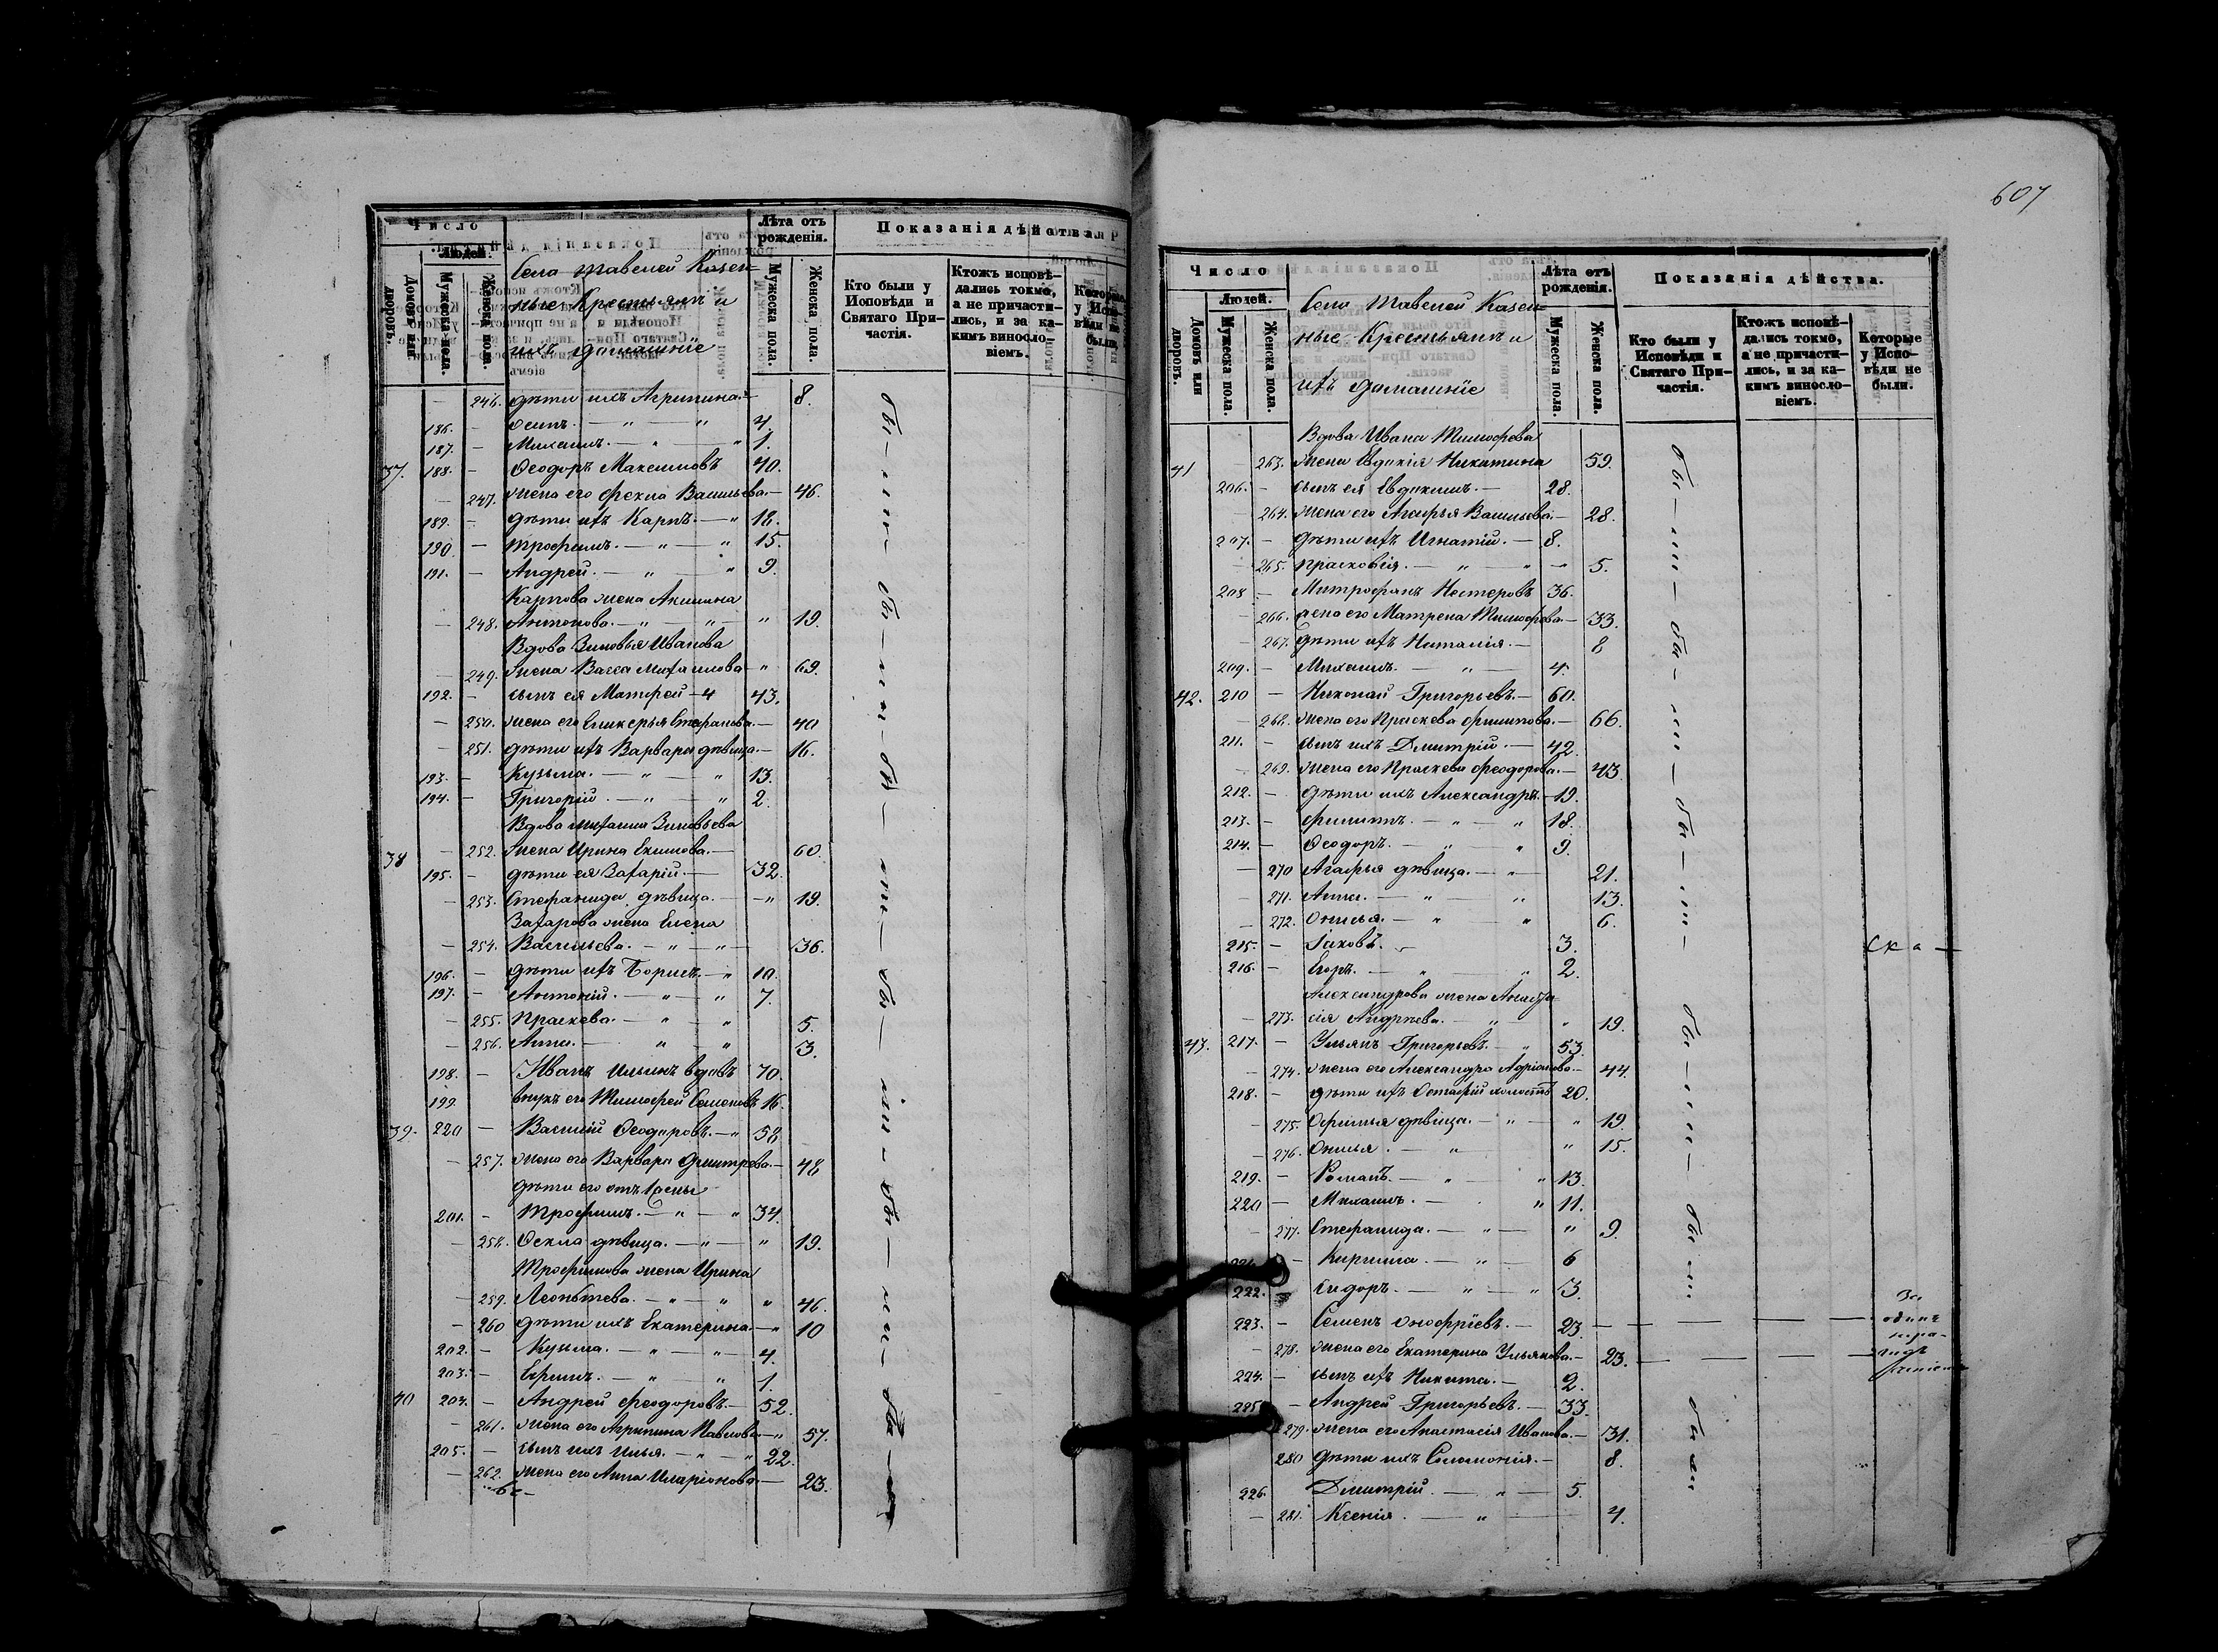 Число
Людей.
Домовъ или дворовъ.
Мужеска пола.
Женска пола.
Села Тавелей Казен-
ные Крестьянъ и
ихъ домашніе
Лѣта отъ рожденія.
Мужеска пола.
Женска пола.
Показанія дѣйства
Кто были у Исповѣди и Святаго При-частія.
Ктожъ исповѣ-дались токмо, а не причасти-лись, и за ка-кимъ винословіемъ.
Которые у Испо-вѣди не были.
— 246. дѣти ихъ Агрипина. — 8.
186. — Осипъ. — " — " 4.
187. — Михаилъ. — " — " 1.
37. 188. — Ѳеодоръ Максимовъ 40.
— 247. жена его Фекла Васильева. — 46.
189. — дѣти ихъ Карпъ. — " 18.
190. — Трофимъ. — " — " 15.
191. — Андрей. — " — " 9.
Карпова жена Акилина
— 248. Антонова. — " — " — " 19.
Вдова Зиновья Иванова
— 249. жена Васса Михаилова — " 69.
192. — сынъ ея Матфей — 43.
— 250. жена его Гликерья Стефанова. — 40
— 251. дѣти ихъ Варвара дѣвица. — 16.
193. — Кузьма. — " — " 13.
194. — Григорій. — " — " 2.
Вдова Михаила Зиновьева
38 — 252. жена Ирина Екимова. — 60.
195. — дѣти ея Захарій. — 32.
— 253. Стефанида дѣвица. — " 19.
Захарова жена Елена
— 254. Васильева. — " — " — 36.
196. — дѣти ихъ Борисъ. — " 10.
197. — Антоній. — " — " 7.
— 255. Праскева. — " — " 5.
— 256. Анна. — " — " 3.
198. — Иванъ Ильинъ вдовъ 70.
199 внукъ его Тимофей Семеновъ 16.
39. 220 — Василій Ѳеодоровъ. — " 58
— 257. жена его Варвара Дмитрева. — 48
дѣти его отъ 1 жены
201. — Трофимъ. — " — " 34.
— 258. Ѳекла дѣвица. — " — " 19.
Трофимова жена Ирина
— 259. Леонтева. — " — " " 46.
— 260 дѣти ихъ Екатерина. — " 10
202. — Кузьма. — " — " — 4.
203. — Ефимъ. — " — " 1.
40 204. — Андрей Феодоровъ. — 52.
— 261. жена его Агрипина Павлова — " 57.
205. — сынъ ихъ Илья. — " — " 22.
— 262. жена его Анна Иларіонова. — 23.
607
Число
Людей.
Домовъ или дворовъ.
Мужеска пола.
Женска пола.
Села Тавелей Казен-
ные Крестьянъ и
ихъ домашніе
Лѣта отъ рожденія.
Мужеска пола.
Женска пола.
Показанія дѣйства.
Кто были у Исповѣди и Святаго При-частія.
Ктожъ исповѣ-дались токмо, а не причасти-лись, и за ка-кимъ винословіемъ.
Которые у Испо-вѣди не были.
Вдова Ивана Тимофева
41 — 263. жена Евдокія Никитина 59.
206. — сынъ ея Евдокимъ. — 28.
— 264. жена его Агафья Васильева. — 28.
207. — дѣти ихъ Игнатій. — 8.
— 265. Прасковія. — " — " — 5.
208 — Митрофанъ Нестеровъ 36.
— 266. жена его Матрена Тимофева. — 33.
— 267. дѣти ихъ Наталія. — 8
209. — Михаилъ. — " — 4.
42. 210 — Николай Григорьевъ. — 60.
— 268. жена его Праскева Филипова. — 66.
211. — сынъ ихъ Дмитрій. — 42.
— 269. жена его Праскева Феодорова. — 43.
212. — дѣти ихъ Александръ. — 19.
213. — Филиппъ. — " — " 18.
214. — Ѳеодоръ. — " — " 9.
— 270 Агафья дѣвица. — " — 21.
— 271. Анна. — " — " 13.
— 272. Онисья. — " — " 6.
215. — Іаковъ. 3.
216. — Егоръ. — " — " 2.
Александрова жена Анаста
— 273. сія Андрѣева. — " — " 19.
43. 217. — Ульянъ Григорьевъ. — " 53.
— 274. жена его Александра Адріанова. — 44.
218. — дѣти ихъ Остафій холостъ 20.
— 275. Офимья дѣвица. — " — " 19.
— 276. Онисья. — " — " 15.
219. — Романъ. — " — " 13.
220 — Михаилъ. — " 11.
— 277. Стефанида. — " — " 9.
— Кирилла. — " — 6
222. Сидоръ. — " — " 3.
223. — Семенъ Онофріевъ. — 23. — — — —
— 278. жена его Екатерина Ульянова. — 23. — — —
224. — сынъ ихъ Никита. — 2.
225 — Андрей Григорьевъ. — 33.
279. жена его Анастасія Иванова. — 31.
280 дѣти ихъ Соломонія. — 8.
226. Дмитрій. — " — 5.
— 281. Ксенія. — " — 4.